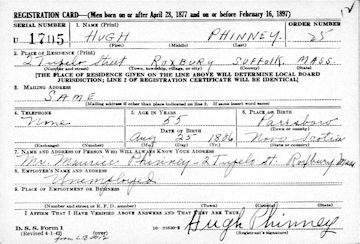 REGISTRATION CARD—(Men born on or after April 28, 1877 and on or before February 16, 1897)
SERIAL NUMBER 1. NAME (Print) ORDER NUMBER
U 1795 HUGH PHINNEY
(First) (Middle) (Last)
2. PLACE OF RESIDENCE (Print)
2 Tupelo Street ROXBURY SUFFOLK MASS.
(Number and street) (Town, township, village, or city) (County) (State)
[THE PLACE OF RESIDENCE GIVEN ON THE LINE ABOVE WILL DETERMINE LOCAL BOARD
JURISDICTION; LINE 2 OF REGISTRATION CERTIFICATE WILL BE IDENTICAL]
3. MAILING ADDRESS
SAME
[Mailing address if other than place indicated on line 2. If same insert word same]
4. TELEPHONE 5. AGE IN YEARS 6. PLACE OF BIRTH
None 55 Parrsboro
DATE OF BIRTH (Town or county)
Aug 25 1886 Nova Scotia
(Exchange) (Number) (Mo.) (Day) (Yr.) (State or country)
7. NAME AND ADDRESS OF PERSON WHO WILL ALWAYS KNOW YOUR ADDRESS
Mr. Maurice Phinney - 2 Tupelo St. Roxbury Mass
8. EMPLOYER'S NAME AND ADDRESS
Unemployed
9. PLACE OF EMPLOYMENT OR BUSINESS
(Number and street or R. F. D. number) (Town) (County) (State)
I AFFIRM THAT I HAVE VERIFIED ABOVE ANSWERS AND THAT THEY ARE TRUE.
D. S. S. Form 1
(Revised 4-1-42) (over)
Hugh Phinney
(Registrant's signature)